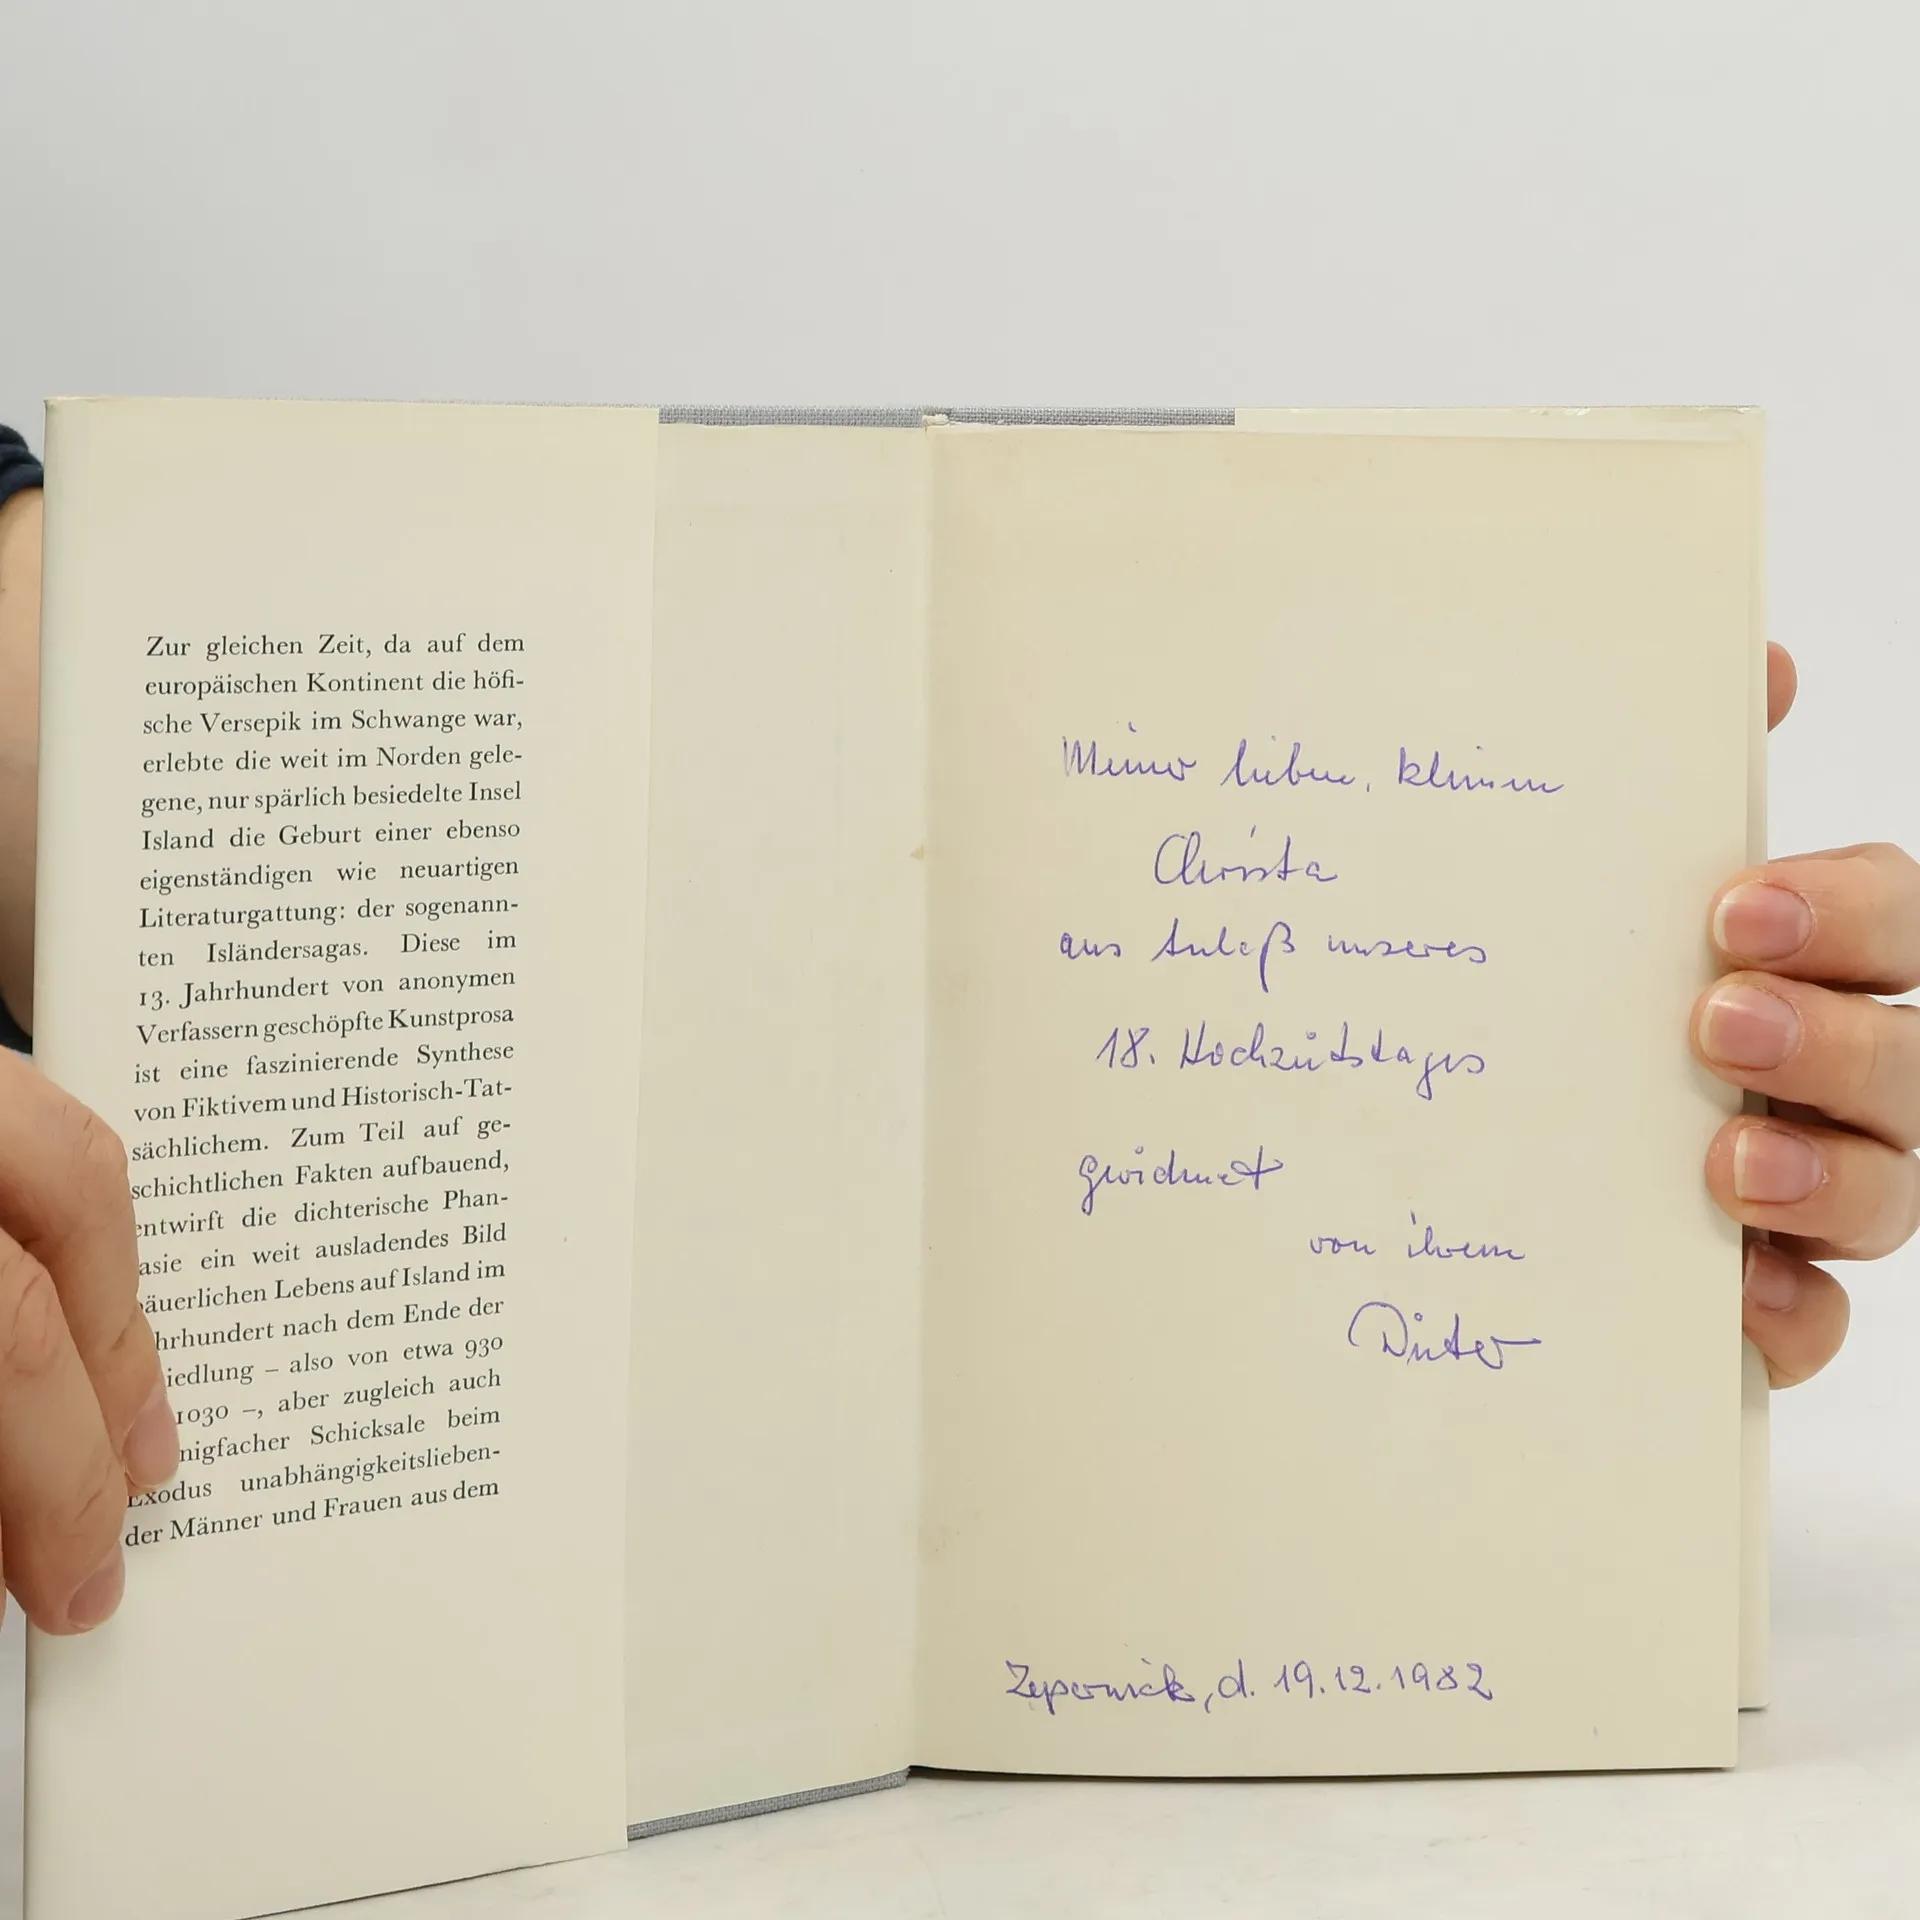 Zur gleichen Zeit, da auf dem
europäischen Kontinent die höfi-
sche Versepik im Schwange war,
erlebte die weit im Norden gele-
gene, nur spärlich besiedelte Insel
Island die Geburt einer ebenso
eigenständigen wie neuartigen
Literaturgattung: der sogenann-
ten Isländersagas. Diese im
13. Jahrhundert von anonymen
Verfassern geschöpfte Kunstprosa
ist eine faszinierende Synthese
von Fiktivem und Historisch-Tat-
sächlichem. Zum Teil auf ge-
schichtlichen Fakten aufbauend,
entwirft die dichterische Phan-
asie ein weit ausladendes Bild
äuerlichen Lebens auf Island im
hrhundert nach dem Ende der
iedlung – also von etwa 930
1030 –, aber zugleich auch
nigfacher Schicksale beim
Exodus unabhängigkeitslieben-
der Männer und Frauen aus dem
Meiner lieben, kleinen
Christa
aus Anlaß unseres
18. Hochzeitstages
gewidmet
von ihrem
Dieter
Zepernick, d. 19.12.1982